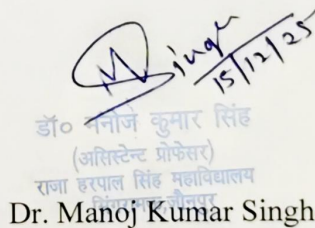 Singh
15/12/25
डॉ० मनोज कुमार सिंह
(असिस्टेन्ट प्रोफेसर)
राजा हरपाल सिंह महाविद्यालय
सिंगरामऊ, जौनपुर
Dr. Manoj Kumar Singh